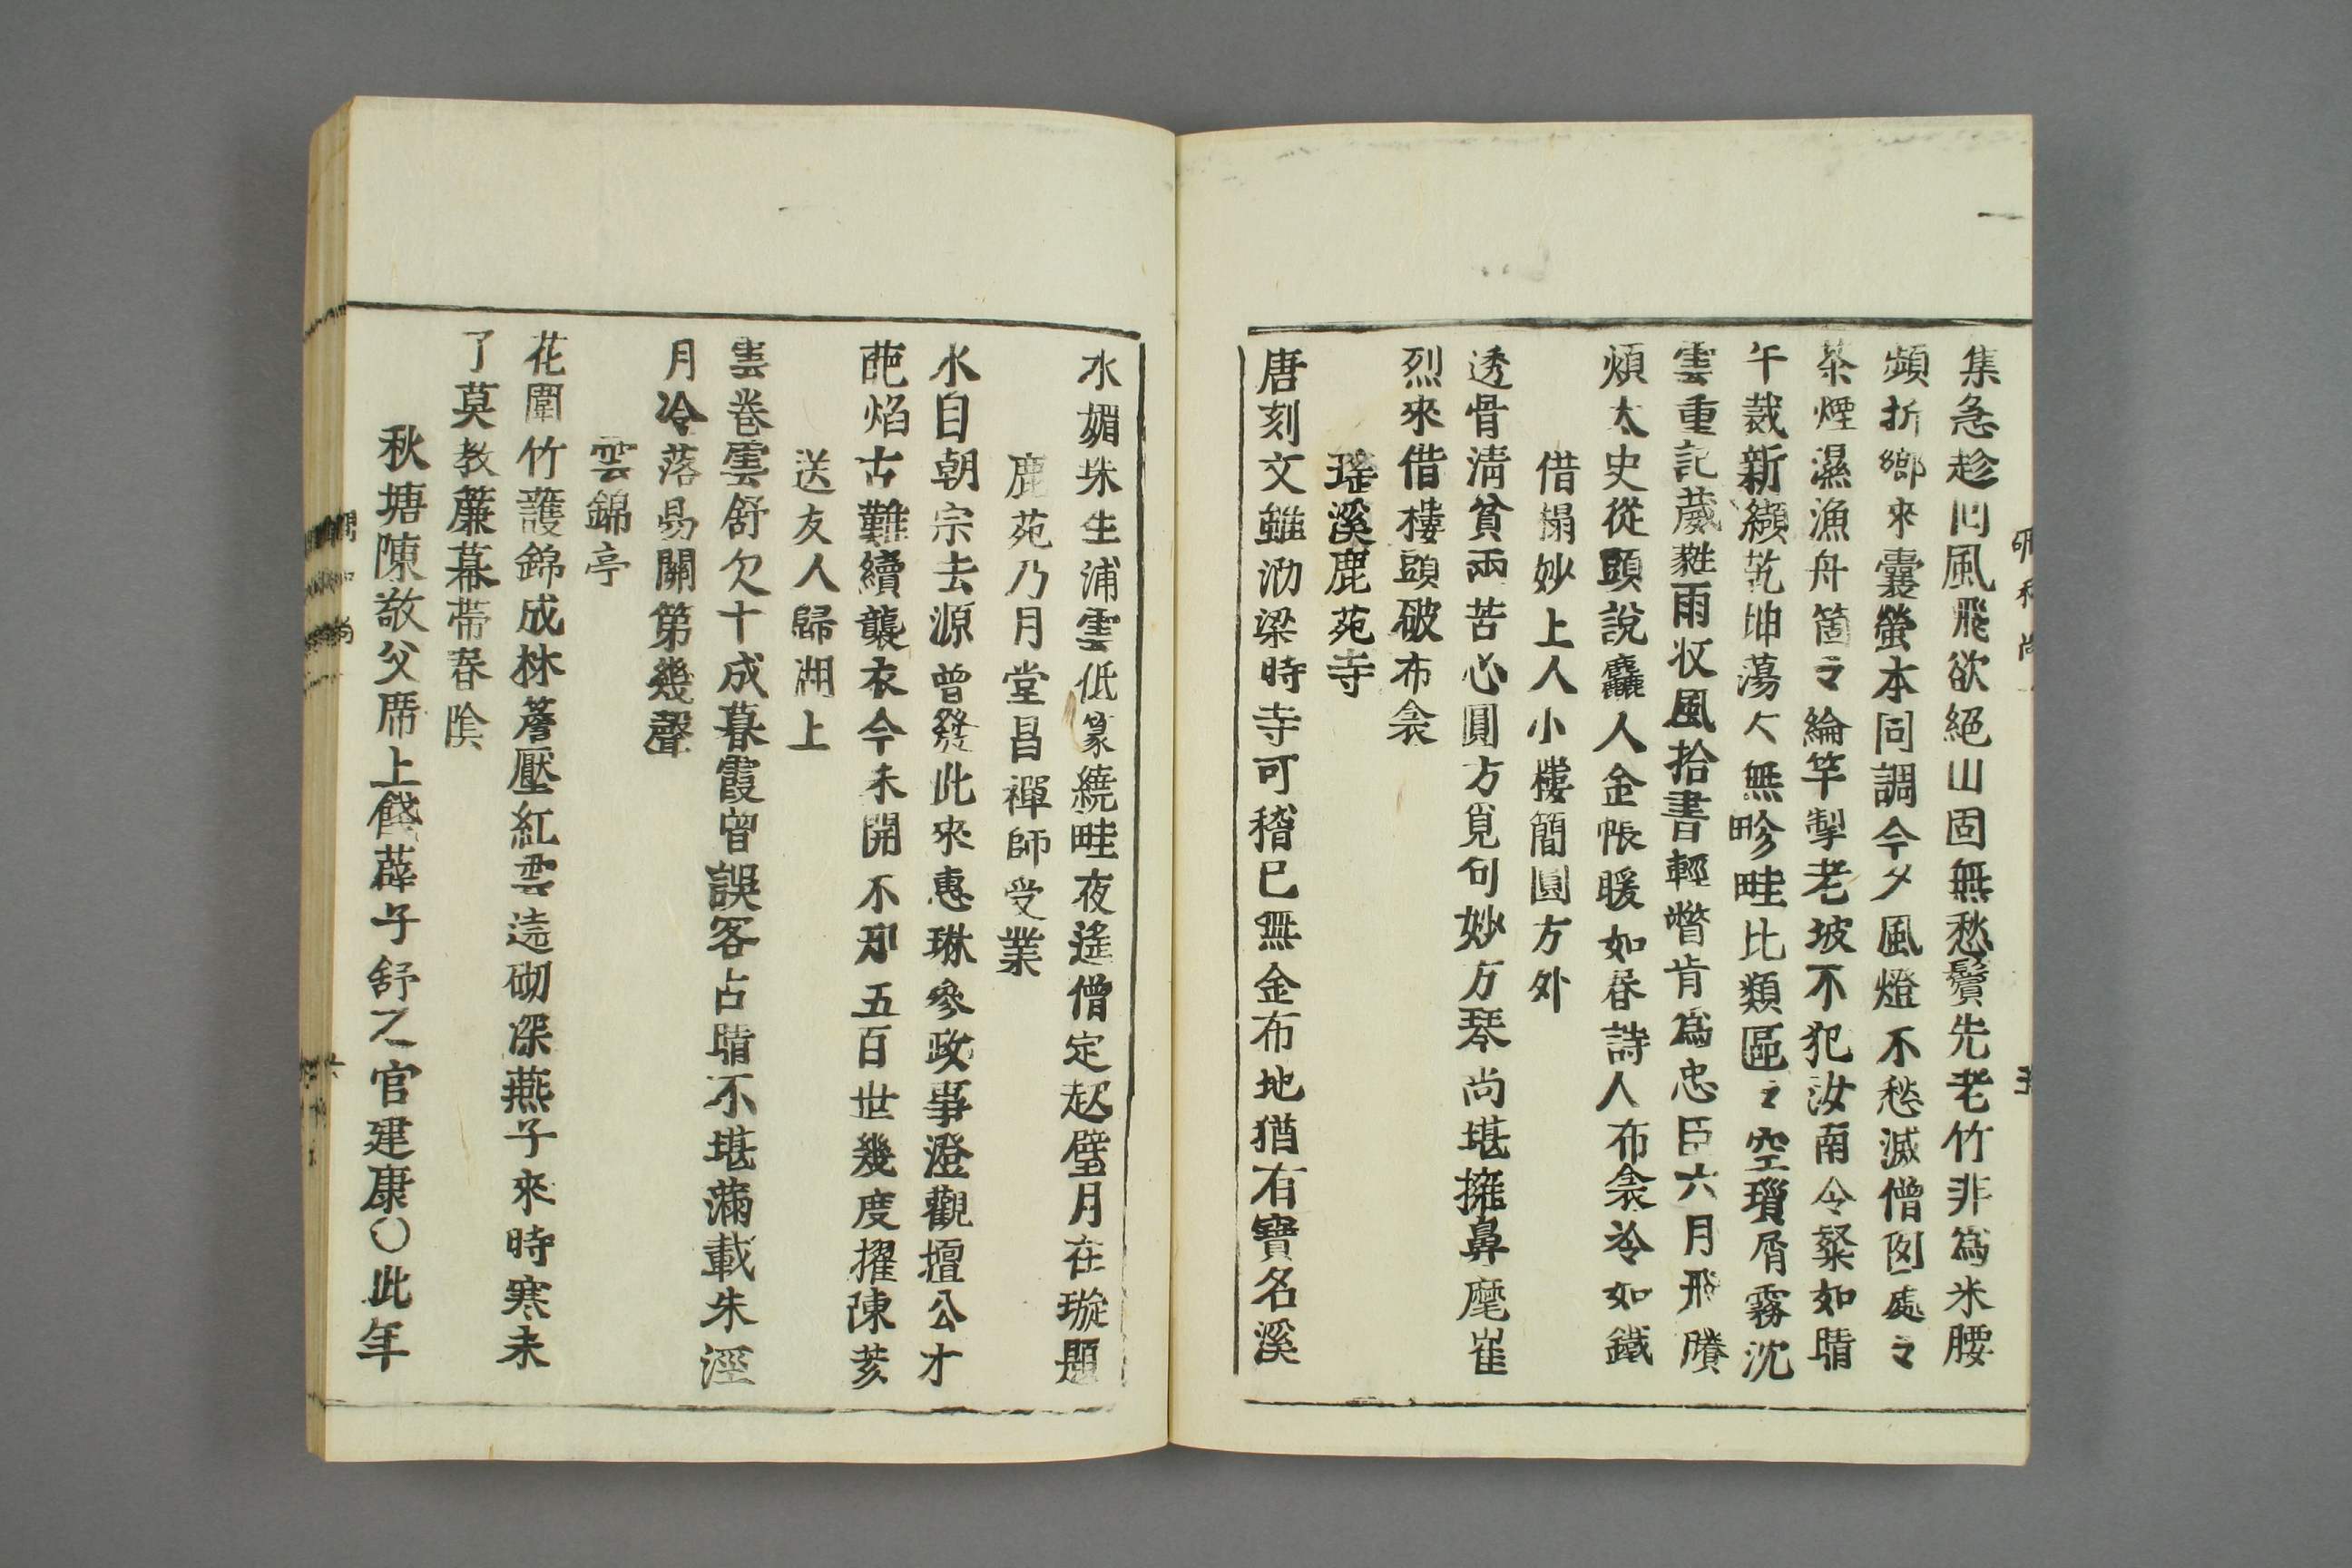 集急趁回風飛欲絕山固無愁鬢先老竹非為米腰
頻折鄉來囊螢本同調今夕風燈不愁滅僧囱處〻
茶煙濕漁舟箇〻綸竿掣老坡不犯汝南令粲如晴
午裁新纈乾坤蕩〻無畛畦比類區〻空瑣屑霧沈
雲重記葳蕤雨收風拾書輕瞥肯為忠臣六月飛賸
煩太史從頭說麤人金帳暖如春詩人布衾冷如鐵
借榻妙上人小樓簡圓方外
透骨清貧兩苦心圓方覓句妙方琴尚堪擁鼻麾崔
烈來借樓頭破布衾
瑤溪鹿苑寺
唐刻文雖泐梁時寺可稽已無金布地猶有寶名溪
水媚珠生浦雲低篆繞畦夜遙僧定起璧月在璇題
鹿苑乃月堂昌禪師受業
水自朝宗去源曾發此來惠琳參政事澄觀壇公才
葩焰古難續襲衣今未開不知五百世幾度擢陳荄
送友人歸湘上
雲卷雲舒欠十成暮霞曾誤客占晴不堪滿載朱涇
月冷落易關第幾聲
雲錦亭
花圍竹護錦成林簷壓紅雲遶砌深燕子來時寒未
了莫教簾幕帶春陰
秋塘陳敬父席上餞薛子舒之官建康〇此年